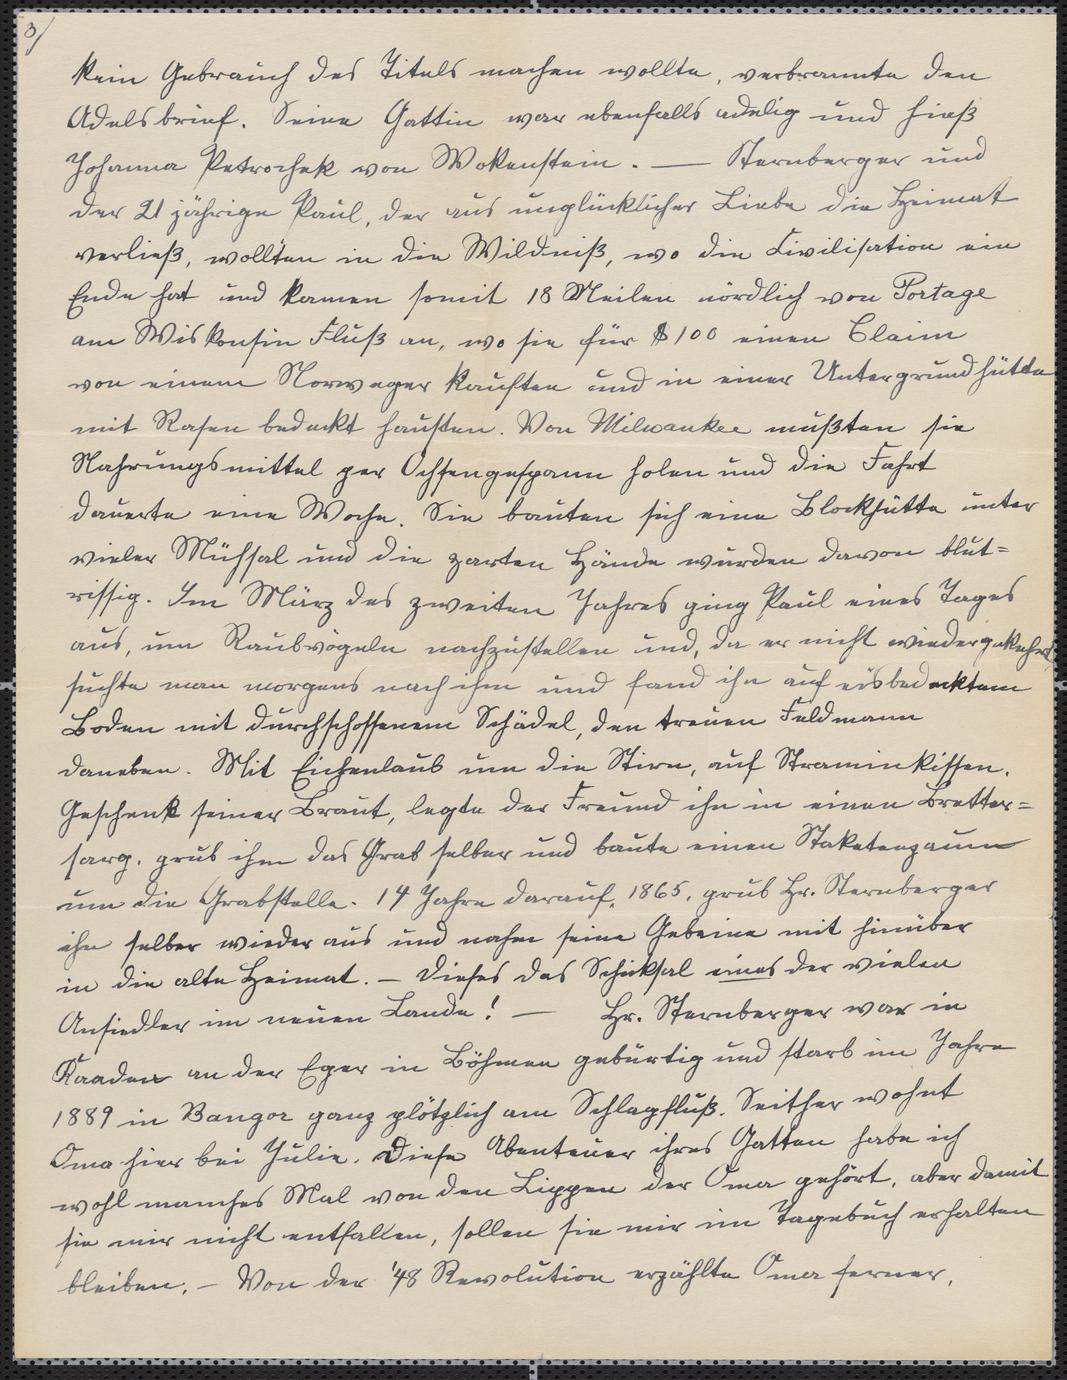 3/
kein Gebrauch des Titels machen wollte, verbrannte den
Adelsbrief. Seine Gattin war ebenfalls adelig und hieß
Johanna Petrochek von Wokenstein. — Sternberger und
der 21 jährige Paul, der aus unglücklicher Liebe die Heimat
verließ, wollten in die Wildniß, wo die Civilisation ein
Ende hat und kamen somit 18 Meilen nördlich von Portage
am Wiskonsin Fluß an, wo sie für $100 einen Claim
von einem Norweger kauften und in einer Untergrundhütte
mit Rasen bedeckt hausten. Von Milwaukee mußten sie
Nahrungsmittel per Ochsengespann holen und die Fahrt
dauerte eine Woche. Sie bauten sich eine Blockhütte unter
vieler Mühsal und die zarten Hände wurden davon blut=
rissig. Im März des zweiten Jahres ging Paul eines Tages
aus, um Raubvögeln nachzustellen und, da er nicht wiedergekehrt,
suchte man morgens nach ihm und fand ihn auf eisbedecktem
Boden mit durchschossenem Schädel, den treuen Feldmann
daneben. Mit Eichenlaub um die Stirn, auf Straminkissen,
Geschenk seiner Braut, legte der Freund ihn in einen Bretter=
sarg, grub ihm das Grab selber und baute einen Staketenzaum
um die Grabstelle. 14 Jahre darauf, 1865, grub Hr. Sternberger
ihn selber wieder aus und nahm seine Gebeine mit hinüber
in die alte Heimat. – Dieses das Schicksal eines der vielen
Ansiedler im neuen Lande! — Hr. Sternberger war in
Kaaden an der Eger in Böhmen gebürtig und starb im Jahre
1889 in Bangor ganz plötzlich am Schlagfluß. Seither wohnt
Oma hier bei Julie. Diese Abenteuer ihres Gatten habe ich
wohl manches Mal von den Lippen der Oma gehört, aber damit
sie mir nicht entfallen, sollen sie mir im Tagebuch erhalten
bleiben. – Von der '48 Revolution erzählte Oma ferner,